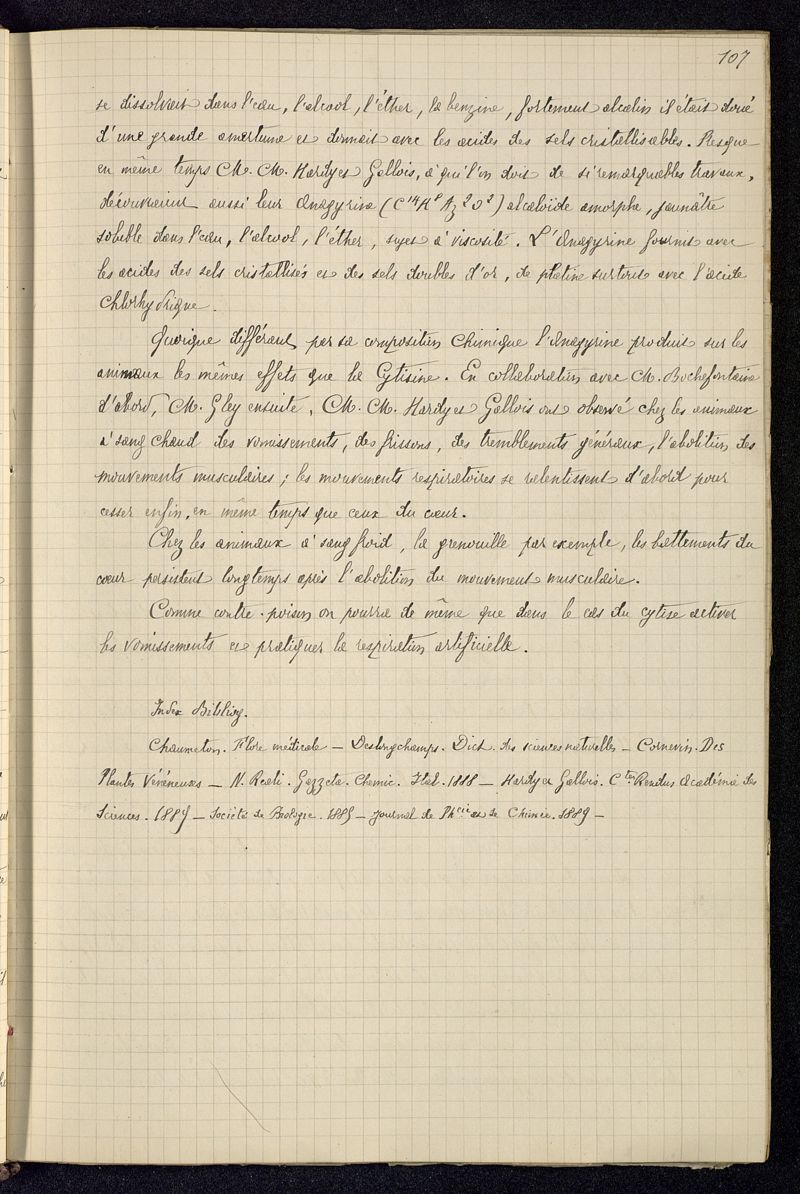 107
se dissolvait dans l'eau, l'alcool, l'éther, la benzine, fortement alcalin il était doué
d'une grande amertume et donnait avec les acides des sels cristallisables. Presque
en même temps M. M. Hardy et Gallois, à qui l'on doit de si remarquables travaux,
découvraient aussi leur Anagyrine (C14H8Az2O2) alcaloïde amorphe, jaunâtre
soluble dans l'eau, l'alcool, l'éther, sujet à viscosité. L'Anagyrine fournit avec
les acides des sels cristallisés et des sels doubles d'or, de platine surtout avec l'acide
Chlorhydrique.
Quoique différant par sa composition Chimique l'Anagyrine produit sur les
animaux les mêmes effets que la Cytisine. En collaboration avec M. Bochefontaine
d'abord, M. Gley ensuite, M. M. Hardy et Gallois ont observé chez les animaux
à sang chaud des vomissements, des frissons, des tremblements généraux, l'abolition des
mouvements musculaires ; les mouvements respiratoires se ralentissent d'abord pour
cesser enfin, en même temps que ceux du cœur.
Chez les animaux à sang froid, la grenouille par exemple, les battements du
cœur persistent longtemps après l'abolition du mouvement musculaire.
Comme contre-poison on pourra de même que dans le cas du cytise activer
les vomissements et pratiquer la respiration artificielle.
Index Bibliog.
Chaumeton. Flore médicale — Deslongchamps. Dict. des sciences naturelles — Cornevin. Des
Plantes Vénéneuses — N. Reali. Gazzeta. Chemic. Ital. 1888 — Hardy et Gallois. Ctes Rendus Académie des
Sciences. 188 — Société de Biologie. 1885 — Journal de Phcie et de Chimie. 1889 —